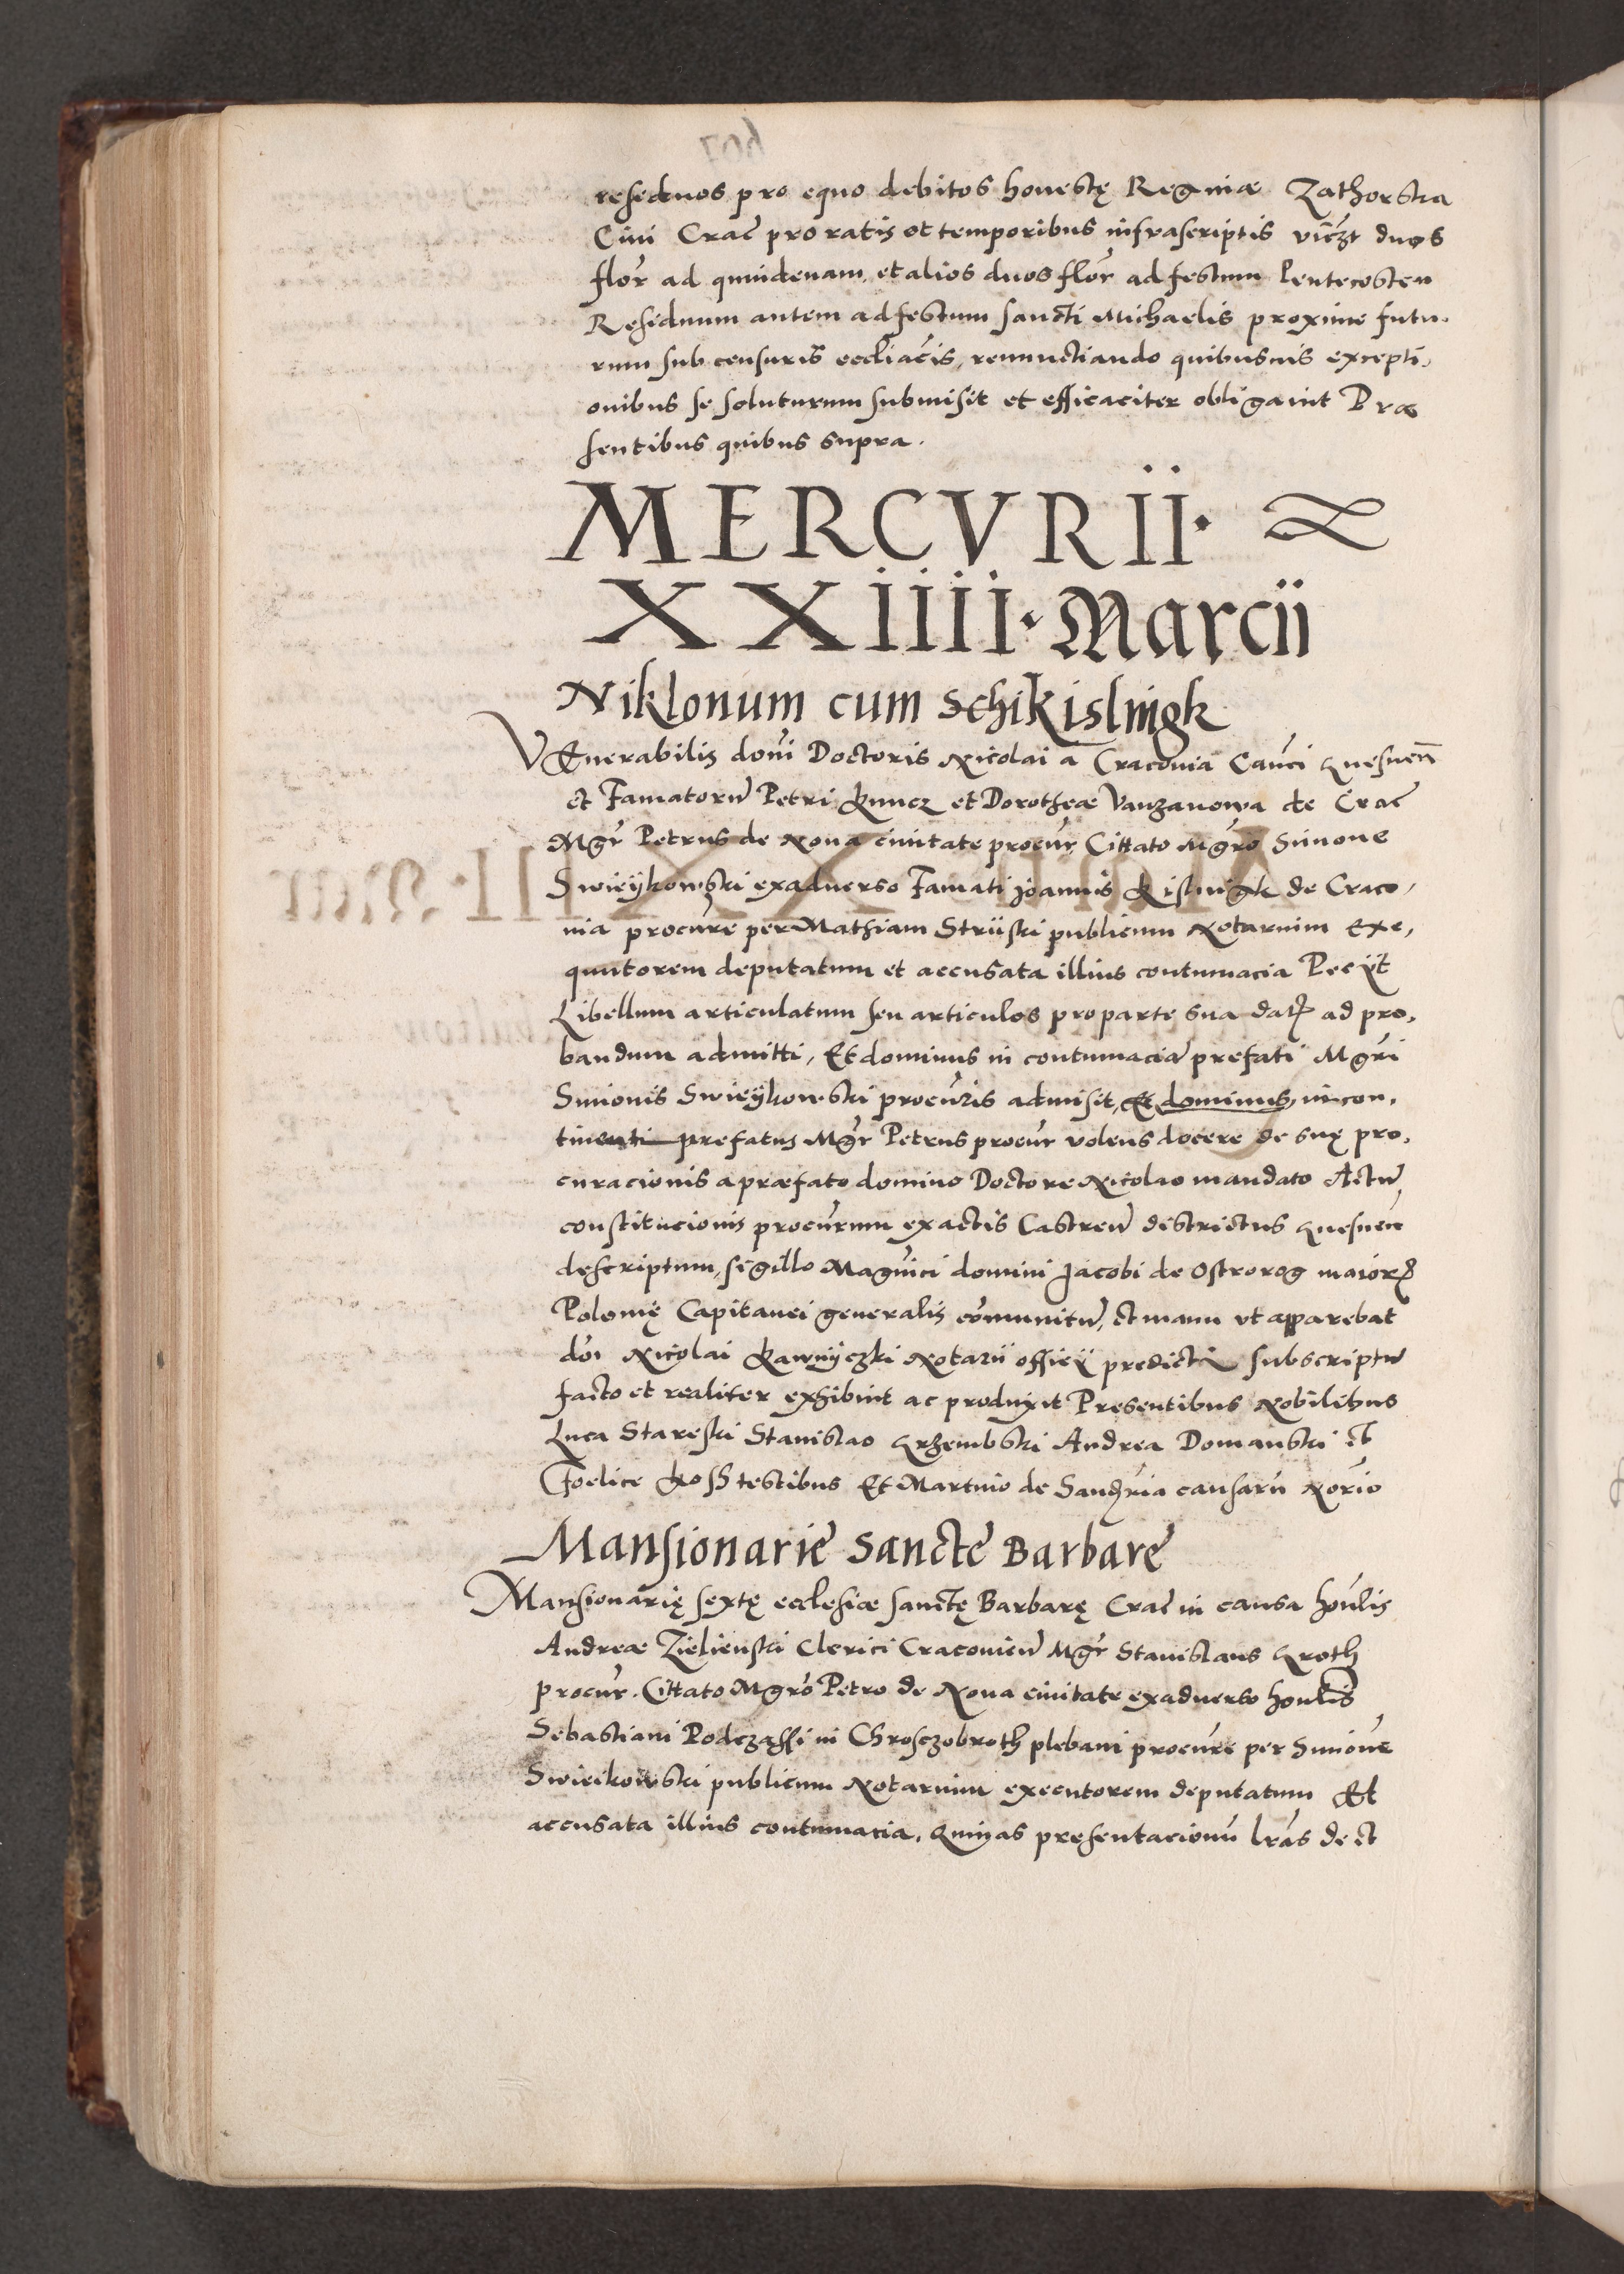 residuos pro equo debitos honestę Reginæ Zathorska
Civi Crac̄ pro ratis et temporibus infrascriptis vidczt duos
flor̄ ad quindenam, et alios duos flor̄ ad festum Pentecosten
Residuum autem ad festum sancti Michaelis proxime futu-
rum sub censuris eccliacis, renunctiando quibusvis excepti-
onibus se soluturum submisit et efficaciter obligavit Præ
sentibus quibus supra.
MERCVRII.
XXIIII. Marcii
Niklonum cum Schikislingk
VEnerabilis domi Doctoris Nicolai a Cracovia Canci Gnesnen̄
et Famatorū Petri Kuncz et Dorotheæ Vanzanowa de Crac̄
Mgr̄ Petrus de Nova civitate procur̄ Cittato Mgro Simone
Swieÿkowski exadverso Famati Joannis Kislingk de Craco-
via procure per Mathiam Striiski publicum Notarium Exe-
qutorem deputatum et accusata illius contumacia Peciit
Libellum articulatum seu articulos pro parte sua dat ad pro-
bandum admitti, Et dominus in contumaciā prefati Mgri
Simonis Swieÿkowski procuris admisit, Et dominus, incon-
tinenti prefatus Mgr̄ Petrus procur̄ volens docere de suę pro-
curacionis a præfato domino Doctore Nicolao mandato Actū
constitucionis procurum ex actis Castren̄ districtus Gnesnen̄
descriptum, sigillo Magnici domini Jacobi de Ostrorog maior
Polonię Capitanei generalis cōmunitū, et manu ut apparebat
doi Nicolai Kawnÿczki Notarii officii predicti subscriptū
facto et realiter exhibuit ac produxit Presentibus Nobilibus
Luca Stareski Stanislao Grzembski Andrea Domanski et
Foelice Koss testibus Et Martino de Sandria causarū Norio
Mansionarie Sancte Barbare
Mansionarię sextę ecclesiæ sanctę Barbarę Crac̄ in causa honlis
Andreæ Zielienski Clerici Cracovien̄ Mgr̄ Stanislaus Groth
procur̄. Cittato Mgro Petro de Nova civitate exadverso honlis
Sebastiani Podczassi in Chrosczobroth plebani procure per Simonē
Swieikowski publicum Notarium executorem deputatum Et
accusata illius contumacia, quinas presentacionū lrās de et